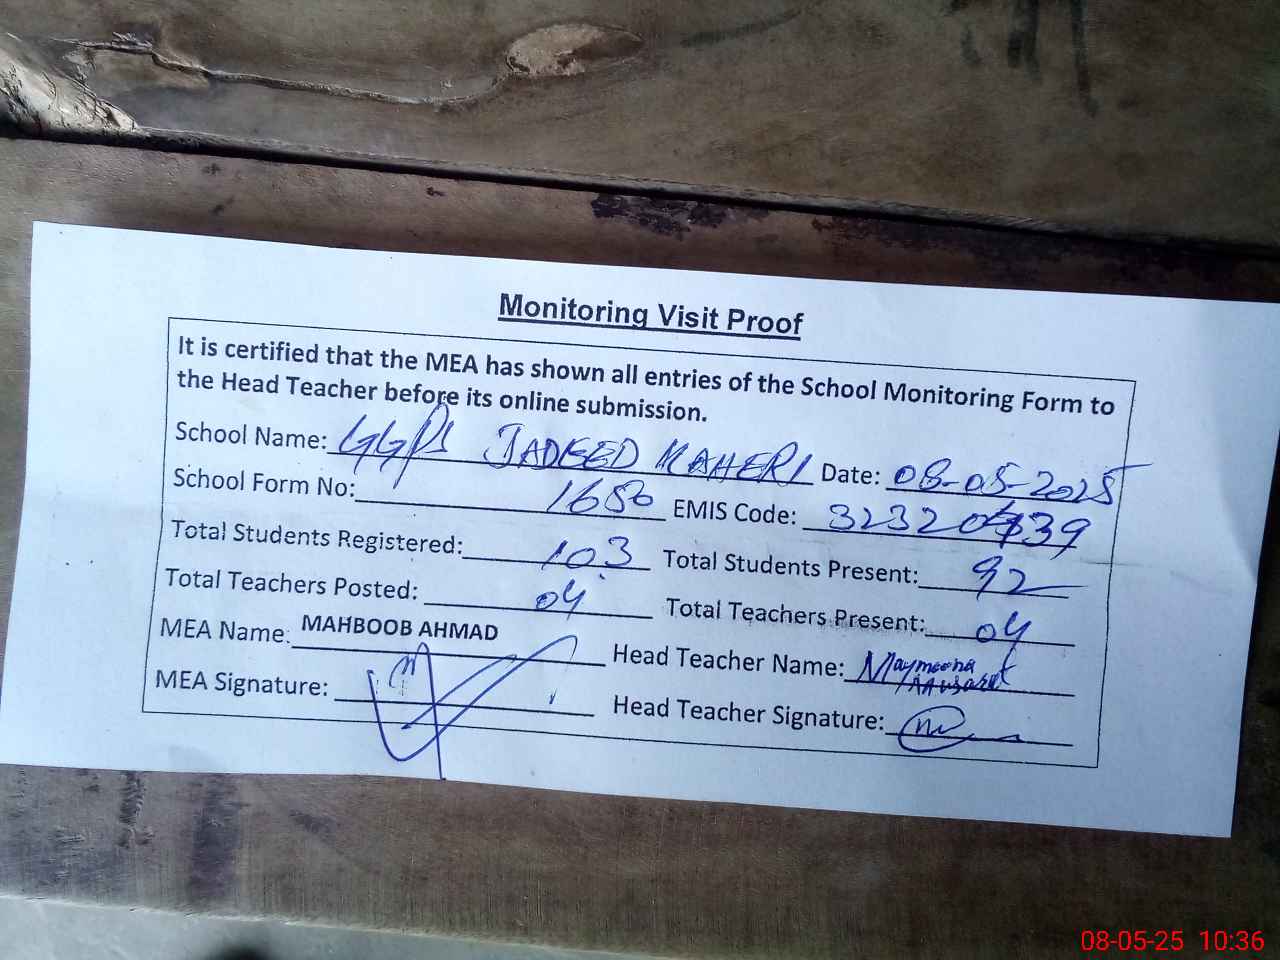 Monitoring Visit Proof
It is certified that the MEA has shown all entries of the School Monitoring Form to
the Head Teacher before its online submission.
School Name: GGPS JADEED MAHERI Date: 08-05-2025
School Form No: 1650 EMIS Code:
Total Students Registered: 103 Total Students Present: 92
Total Teachers Posted: 04 Total Teachers Present: 04
MEA Name: MAHBOOB AHMAD Head Teacher Name: Maymoona
MEA Signature: Head Teacher Signature:
08-05-25 10:36